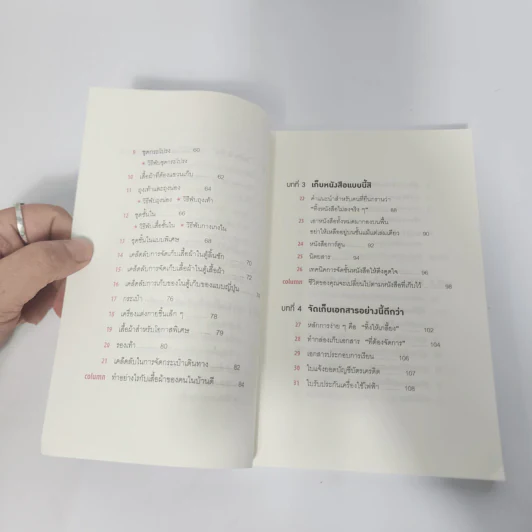 9 ชุดกระโปรง 60
• วิธีพับชุดกระโปรง
10 เสื้อผ้าที่ต้องแขวนเก็บ 62
11 ถุงเท้าและถุงน่อง 64
• วิธีพับถุงน่อง • วิธีพับถุงเท้า
12 ชุดชั้นใน 66
• วิธีพับเสื้อชั้นใน • วิธีพับกางเกงใน
13 ชุดชั้นในแบบพิเศษ 69
14 เคล็ดลับการจัดเก็บเสื้อผ้าในตู้ลิ้นชัก 70
15 เคล็ดลับการจัดเก็บเสื้อผ้าในตู้เสื้อผ้า 72
16 เคล็ดลับการเก็บของในตู้เก็บของแบบญี่ปุ่น
17 กระเป๋า 76
18 เครื่องแต่งกายชิ้นเล็ก ๆ 78
19 เสื้อผ้าสำหรับโอกาสพิเศษ 79
20 รองเท้า 80
21 เคล็ดลับในการจัดกระเป๋าเดินทาง 82
column ทำอย่างไรกับเสื้อผ้าของคนในบ้านดี 84
บทที่ 3 เก็บหนังสือแบบนี้สิ
22 คำแนะนำสำหรับคนที่ยืนกรานว่า
"ทิ้งหนังสือไม่ลงจริง ๆ" 88
23 เอาหนังสือทั้งหมดมากองบนพื้น
อย่าให้เหลืออยู่บนชั้นแม้แต่เล่มเดียว 90
24 หนังสือการ์ตูน 92
25 นิตยสาร 94
26 เทคนิคการจัดชั้นหนังสือให้ดึงดูดใจ 96
column ชีวิตของคุณจะเปลี่ยนไปตามหนังสือที่เก็บไว้ 98
บทที่ 4 จัดเก็บเอกสารอย่างนี้ดีกว่า
27 หลักการง่าย ๆ คือ "ทิ้งให้เกลี้ยง" 102
28 ทำกล่องเก็บเอกสาร "ที่ต้องจัดการ" 104
29 เอกสารประกอบการเรียน 106
30 ใบแจ้งยอดบัญชีบัตรเครดิต 107
31 ใบรับประกันเครื่องใช้ไฟฟ้า 108